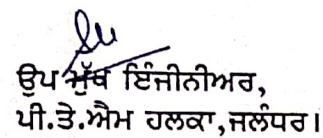 ਉਪ ਮੁੱਖ ਇੰਜੀਨੀਅਰ,
ਪੀ.ਤੇ.ਐਮ ਹਲਕਾ,ਜਲੰਧਰ।